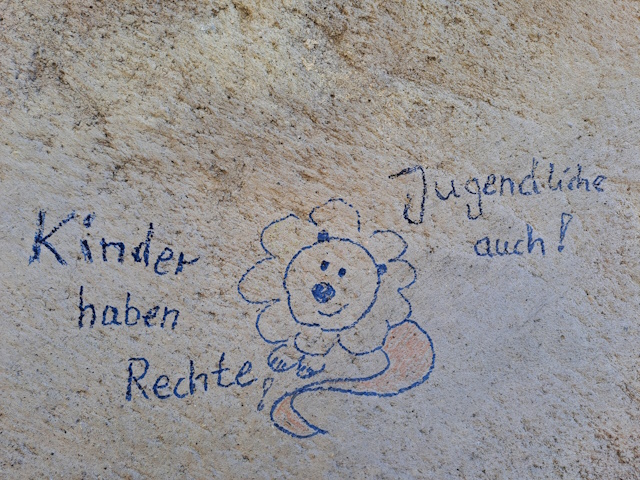 Kinder
haben
Rechte!
Jugendliche
auch!